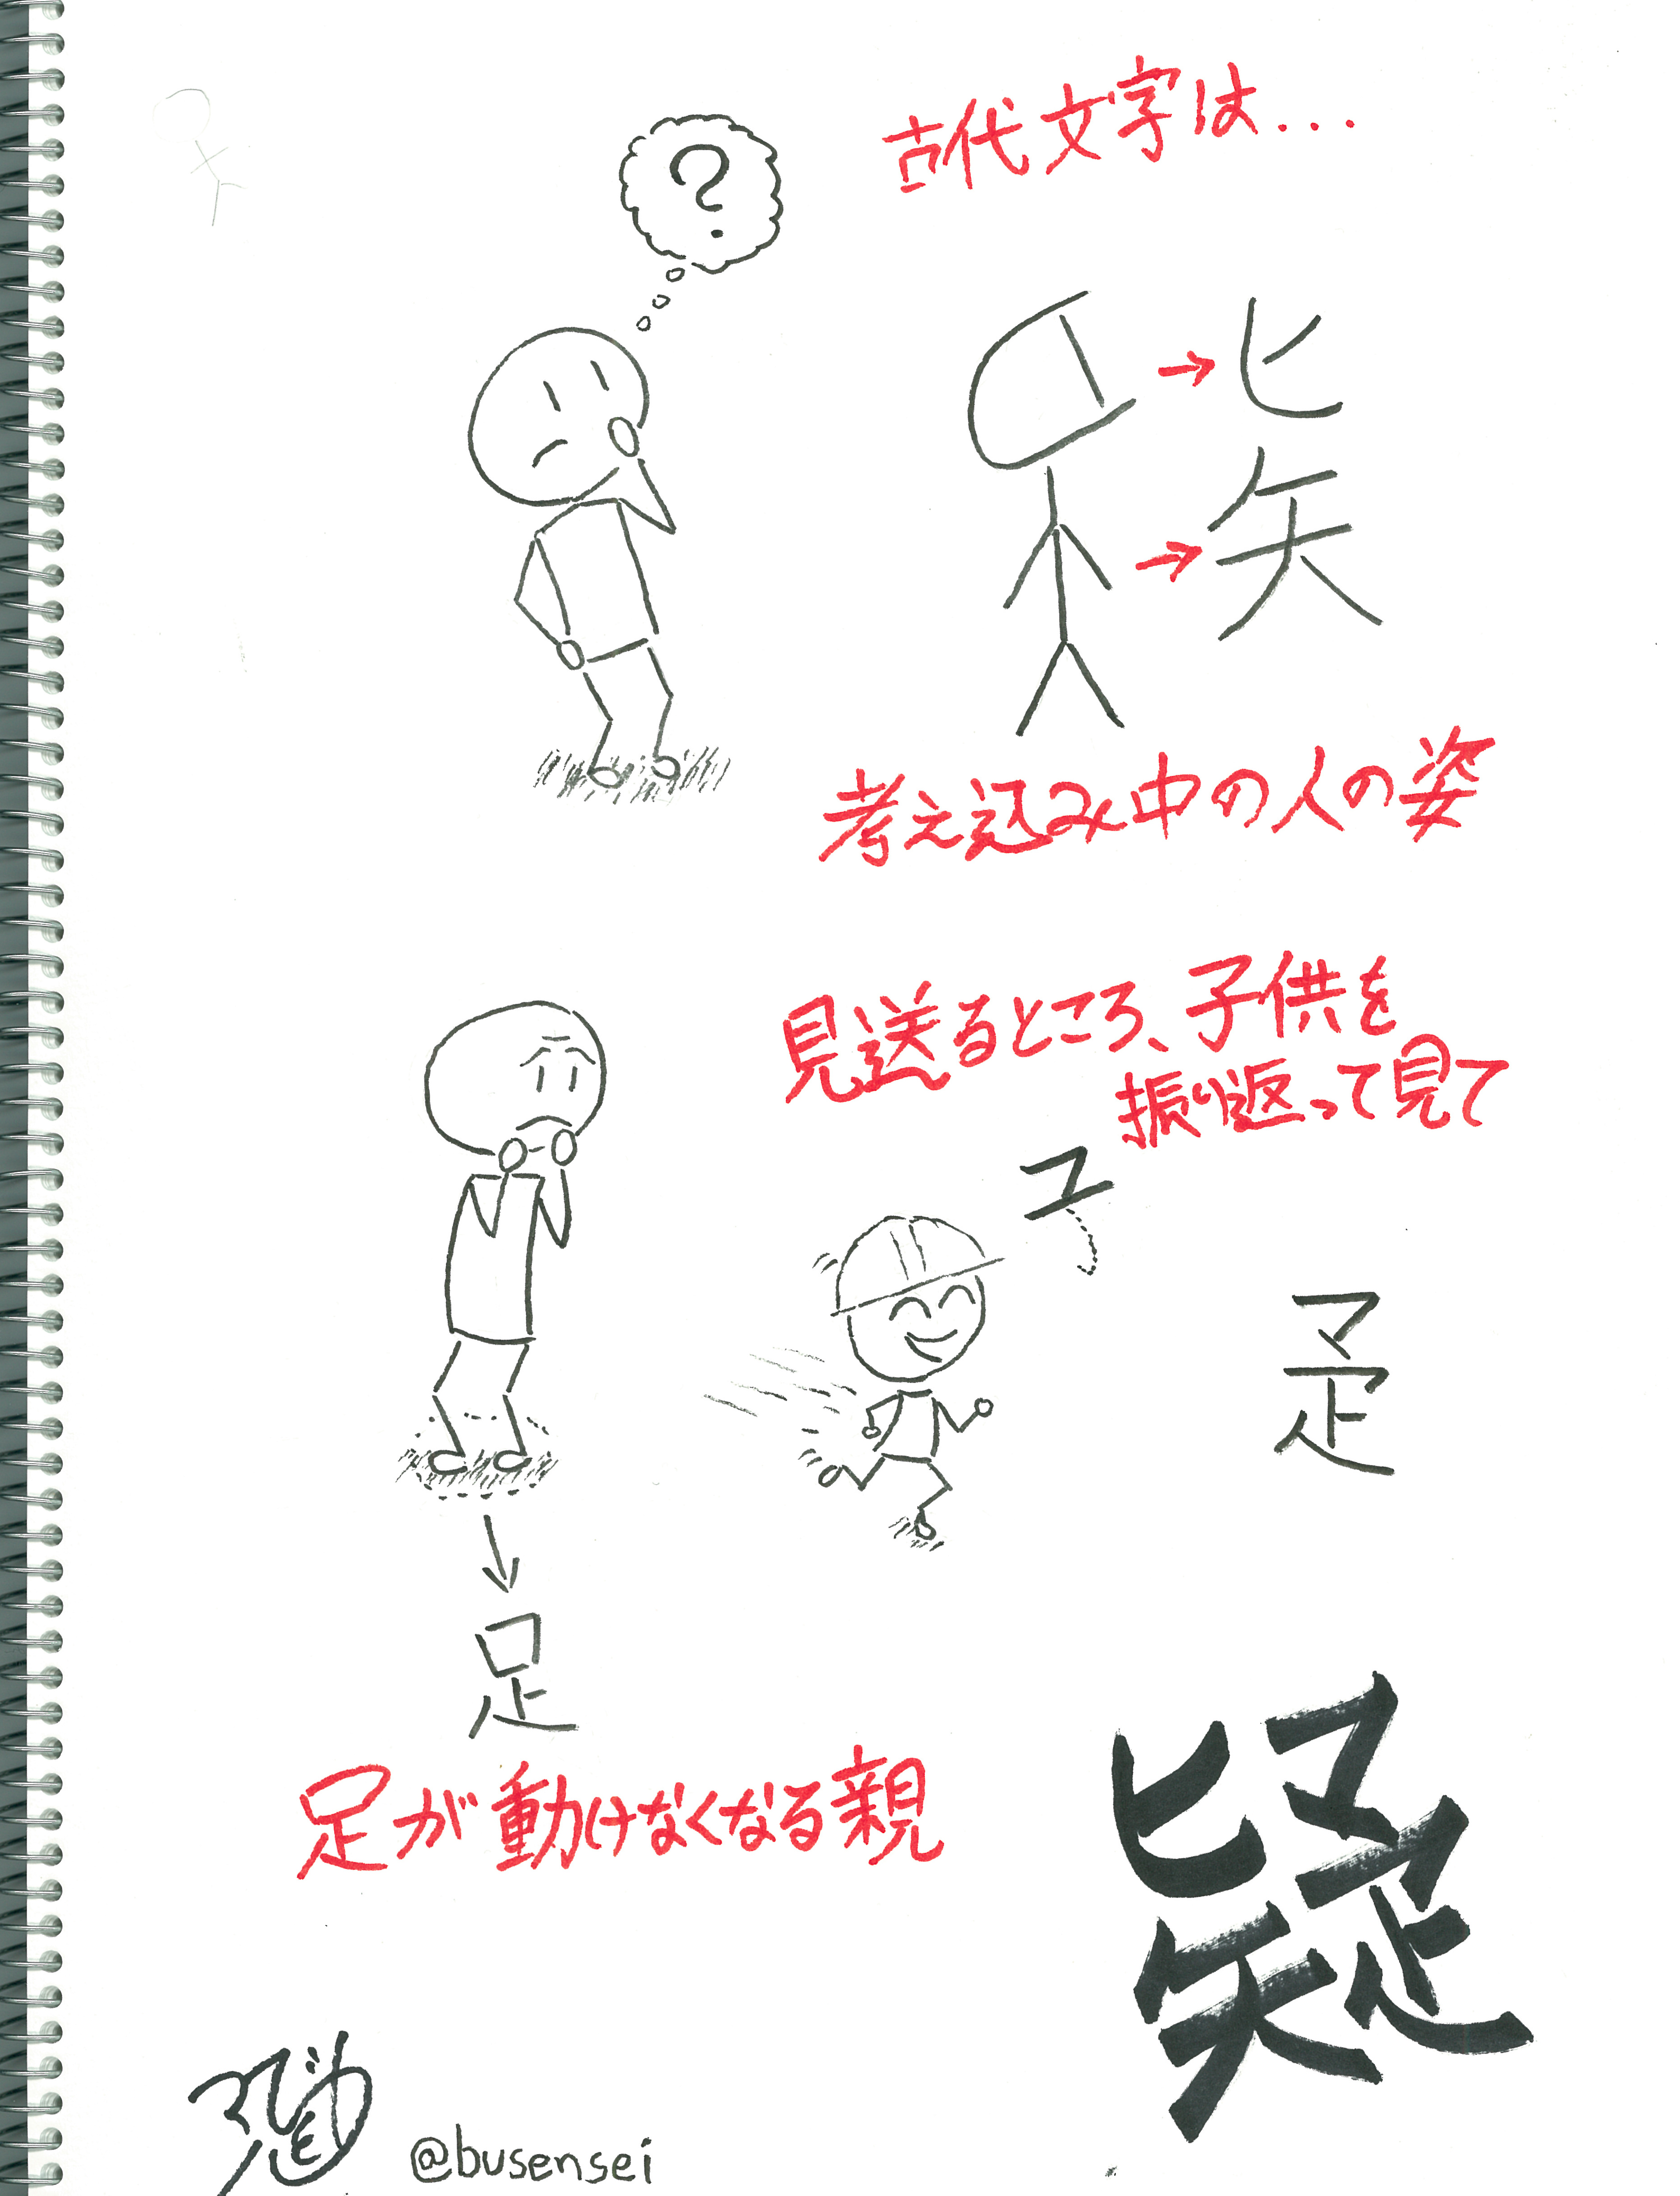 古代文字は...
?
→ヒ
→矢
考え込み中の人の姿
見送るところ、子供を
振り返って見て
子
疋
足
足が動けなくなる親
疑
@busensei